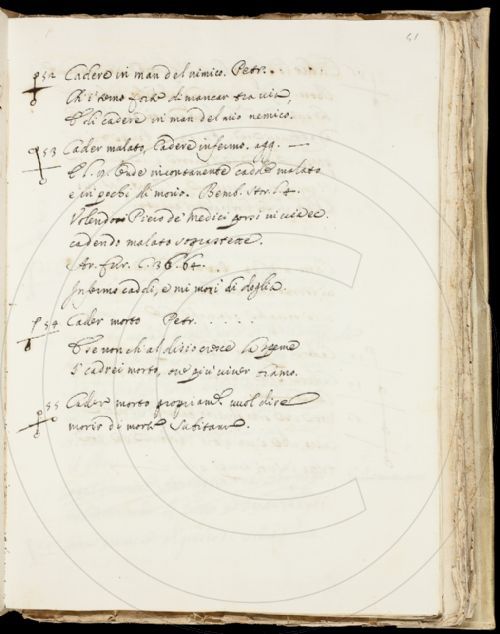 51
52 Cadere in man del nimico. Petr.
Ch'i temo forte di mancar tra via,
E di cadere in man del mio nemico.
53 Cader malato, Cadere infermo. agg. —
E l. 9. onde incontanente cadde malato
e in pochi dì morio. Bemb. Stor. l. 4.
Volendo Piero de' Medici
cadendo malato soprastette.
Ar. fur. C. 36. 64.
Infermo caddi, e mi morì di doglia.
54 Cader morto Petr. . . . .
E se non ch'al disio cresce la speme
I' cadrei morto, ove più viver bramo.
55 Cader morto propriam. vuol dire
morir di morte subitana.